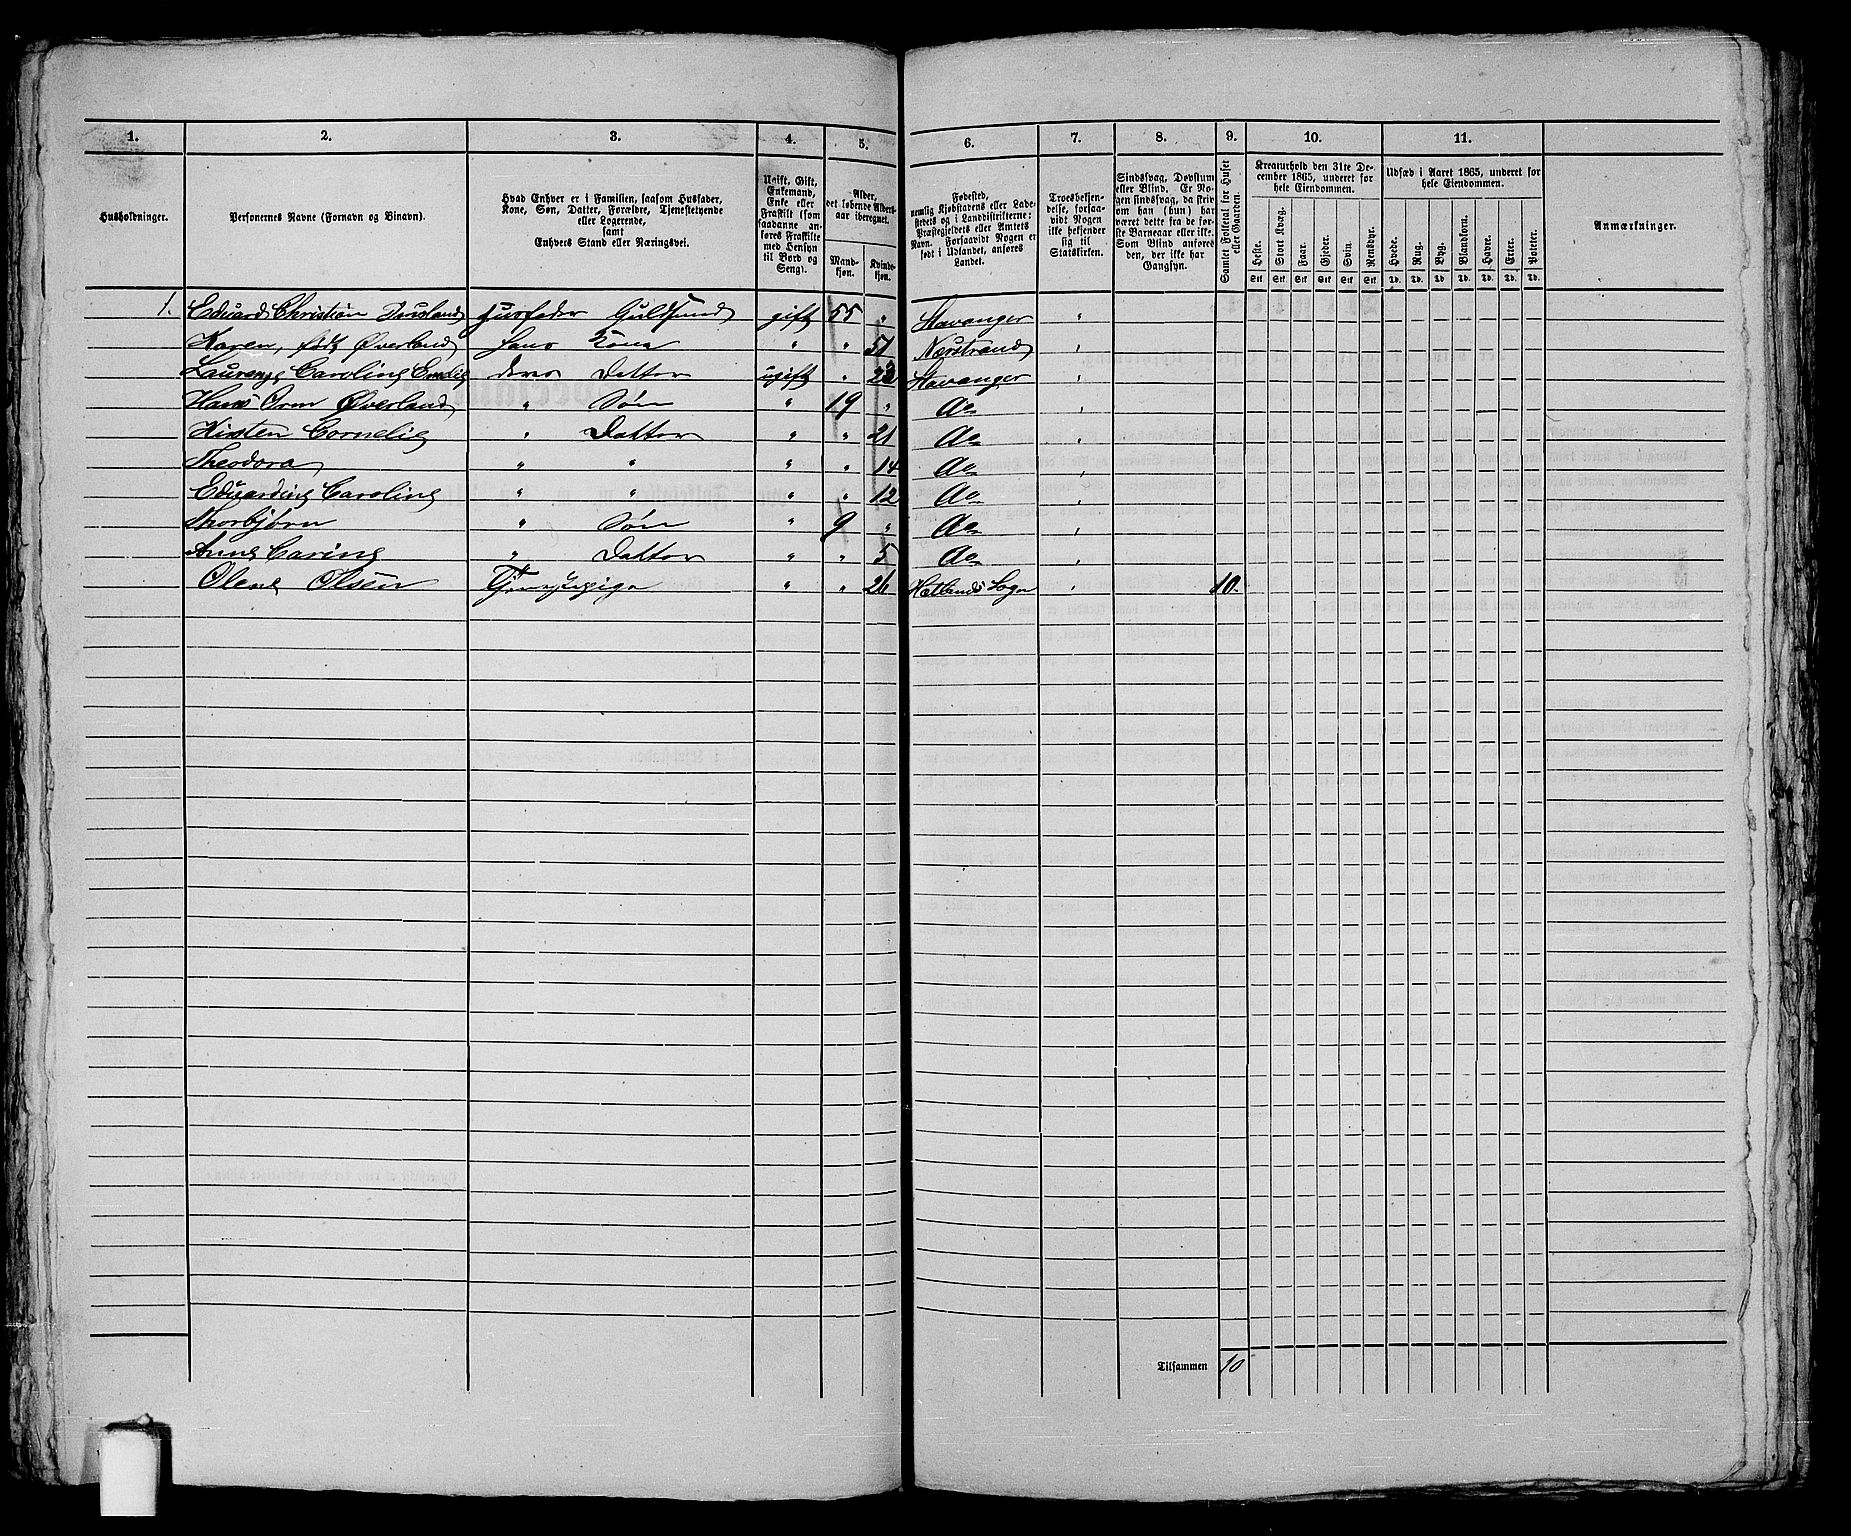 1. 2. 3. 4. 5. 6. 7. 8. 9. 10. 11.
Husholdninger.
Personernes Navne (Fornavn og Binavn).
Hvad Enhver er i Familien, saasom Husfader,
Kone, Søn, Datter, Forældre, Tjenestetyende
eller Logerende,
samt
Enhvers Stand eller Næringsvei.
Ugift, Gift,
Enkemand,
Enke eller
Fraskilt (som
saadanne an-
føres Fraskilte
med Hensyn
til Bord og
Seng).
Alder,
det løbende Alders-
aar iberegnet.
Mand-
kjøn.
Kvinde-
kjøn.
Fødested,
nemlig Kjøbstadens eller Lade-
stedets og i Landdistrikterne:
Præstegjeldets eller Amtets
Navn. Forsaavidt Nogen er
født i Udlandet, anføres
Landet.
Troesbekjen-
delse, forsaa-
vidt Nogen
ikke bekjender
sig til
Statskirken.
Sindssvag, Døvstum
eller Blind. Er No-
gen sindssvag, da skriv
om han (hun) har
været dette fra de før-
ste Barneaar eller ikke.
Som Blind anføres
den, der ikke har
Gangsyn.
Samlet Folketal for Huset
eller Gaarden.
Kreaturhold den 31te De-
cember 1865, underet for
hele Eiendommen.
Heste. Stort Kvæg. Faar. Gjeder. Svin. Rensdyr.
Stk Stk Stk Stk Stk Stk
Udsæd i Aaret 1865, underet for
hele Eiendommen.
Hvede. Rug. Byg. Blandkorn. Havre. Erter. Poteter.
Td. Td. Td. Td. Td. Td. Td.
Anmærkninger.
1. Eduard Christian Husfader Guldsmed gift 55 " Stavanger "
Karen, født Øverland hans Kone " " 51 Nærstrand "
Caroline Emilie deres Datter ugift " 23 Stavanger "
Hans Orm Øverland " Søn " 19 " do "
Kirsten Cornelie " Datter " " 21 do "
Theodora " " " " 14 do "
Eduardine Caroline " " " " 12 do "
Thorbjørn " Søn " 9 " do "
Anne Carine " Datter " " 5 do "
Olene Olsen Tjenestepige " " 26 Hetlands Sogn " 10.
Tilsammen 10